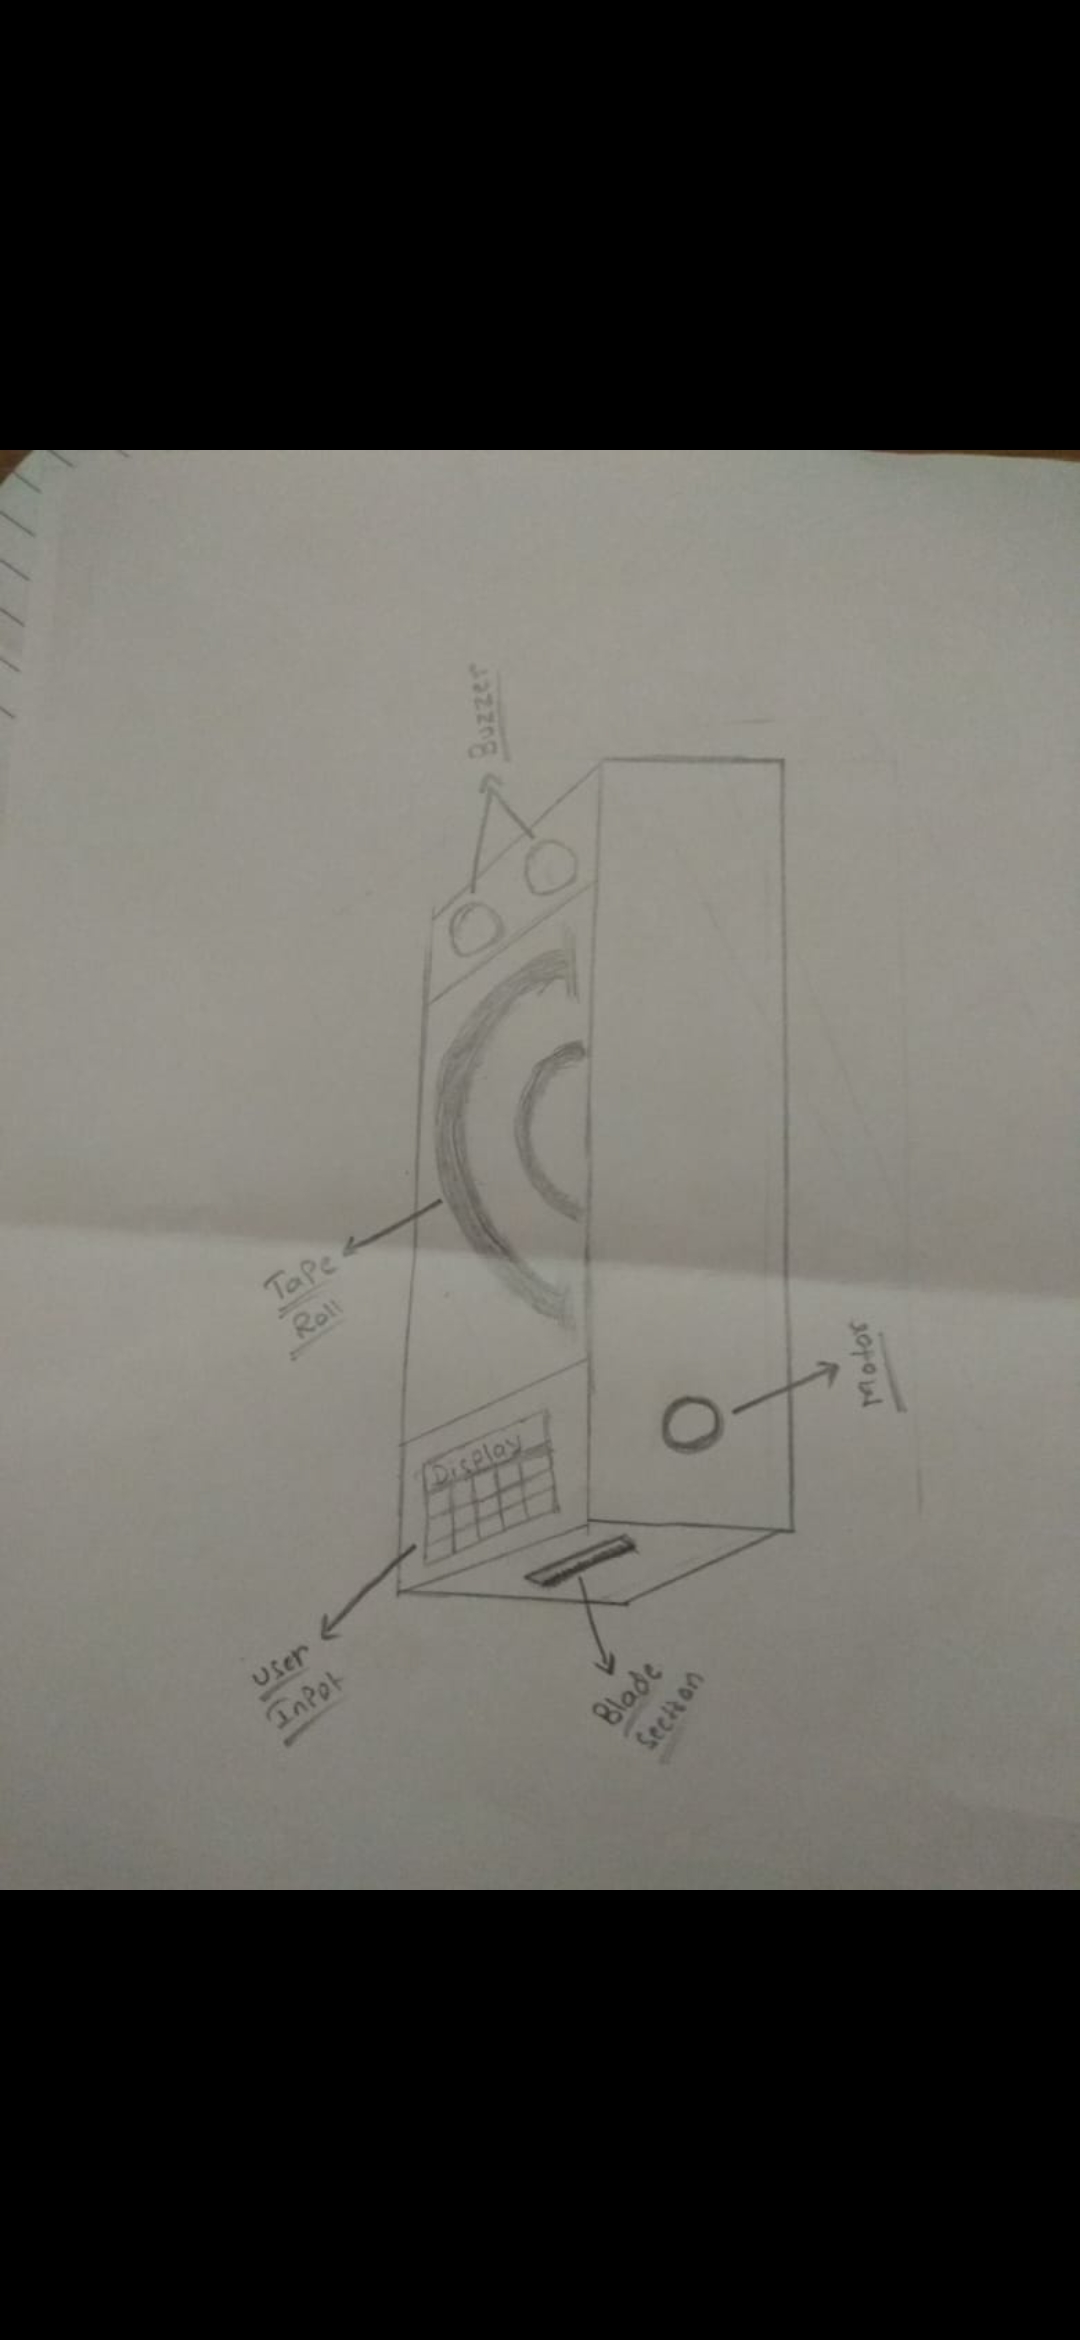 Buzzer
Tape
Roll
Motor
Display
User
Input
Blade
Section